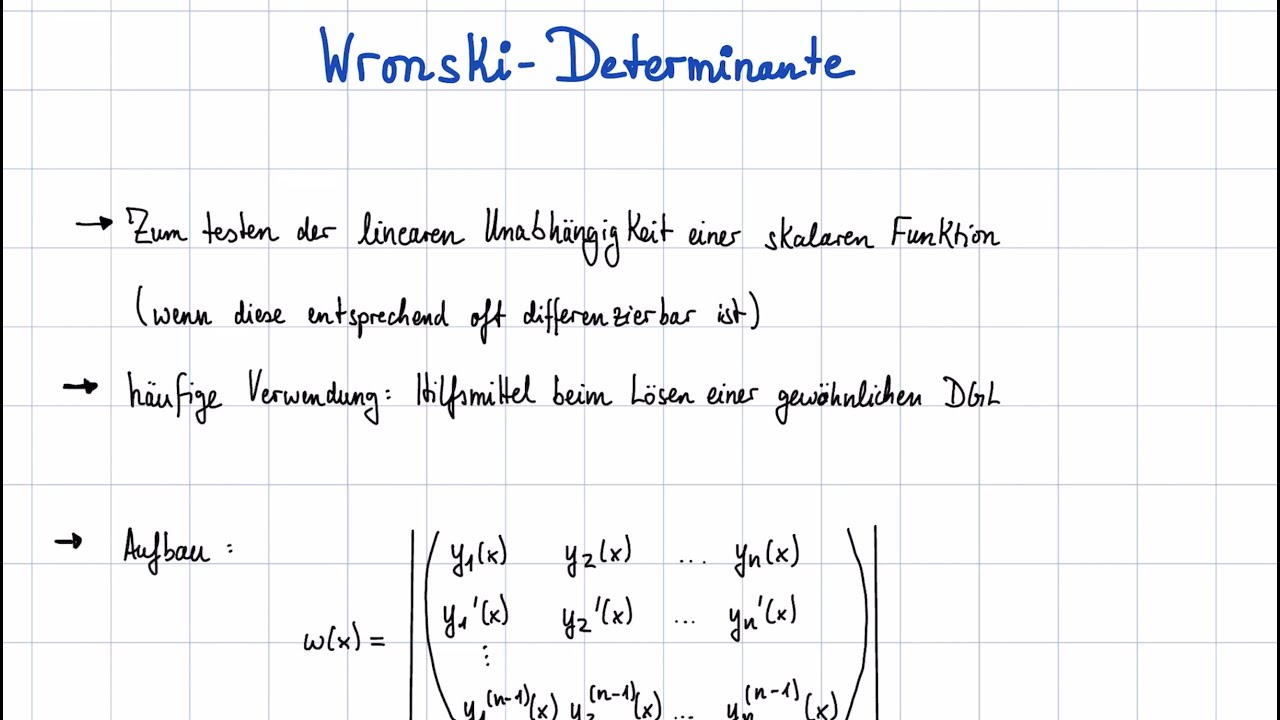 Wronski-Determinante
→ Zum testen der linearen Unabhängigkeit einer skalaren Funktion
(wenn diese entsprechend oft differenzierbar ist)
→ häufige Verwendung: Hilfsmittel beim Lösen einer gewöhnlichen DGL
→ Aufbau:
y₁(x) y₂(x) ... yₙ(x)
y₁'(x) y₂'(x) ... yₙ'(x)
w(x) =
⋮
y₁⁽ⁿ⁻¹⁾(x) y₂⁽ⁿ⁻¹⁾(x) ... yₙ⁽ⁿ⁻¹⁾(x)